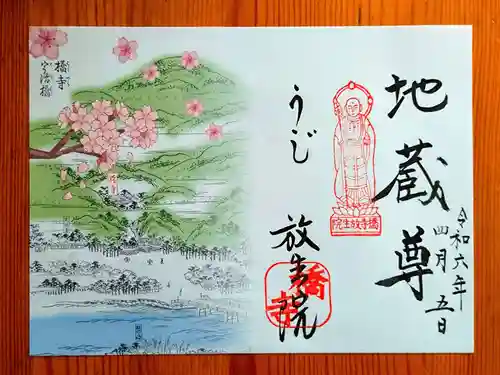 地蔵尊
令和六年
四月五日
うじ
放生院
橋寺放生院
橋寺
橋寺
宇治橋